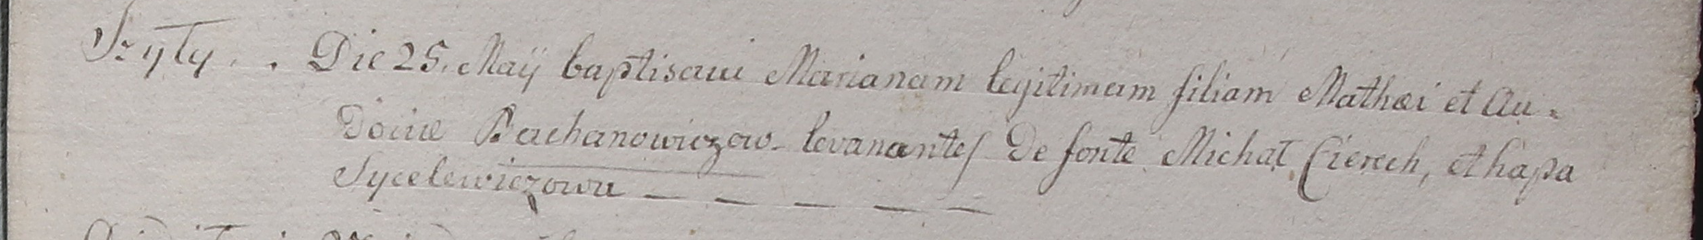 Szyły . . Die 25. Maÿ baptisavi Mariánam legitimam filiam Mathæi et Au-
dociæ Bachanowiczow levanantes De fonte Michał Cierech, et hapa
Sycelewiczowa — — — — —